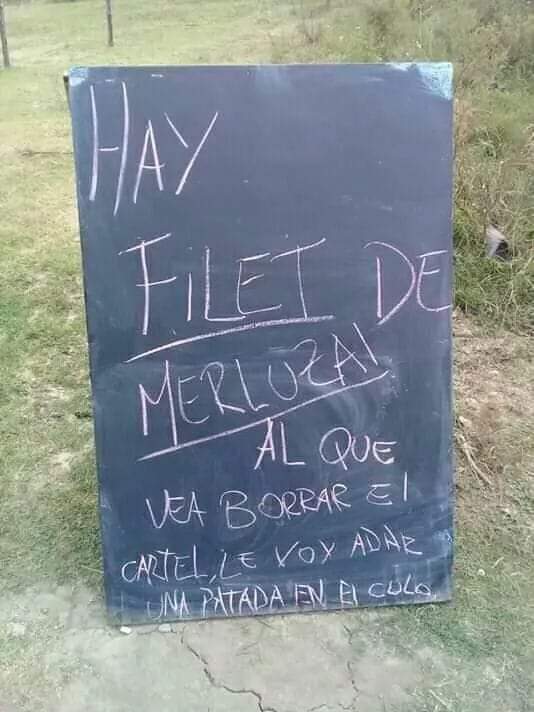 HAY
FILET DE
MERLUZA!
AL QUE
VEA BORRAR El
CARTEL, LE VOY ADAR
UNA PATADA EN El CULO